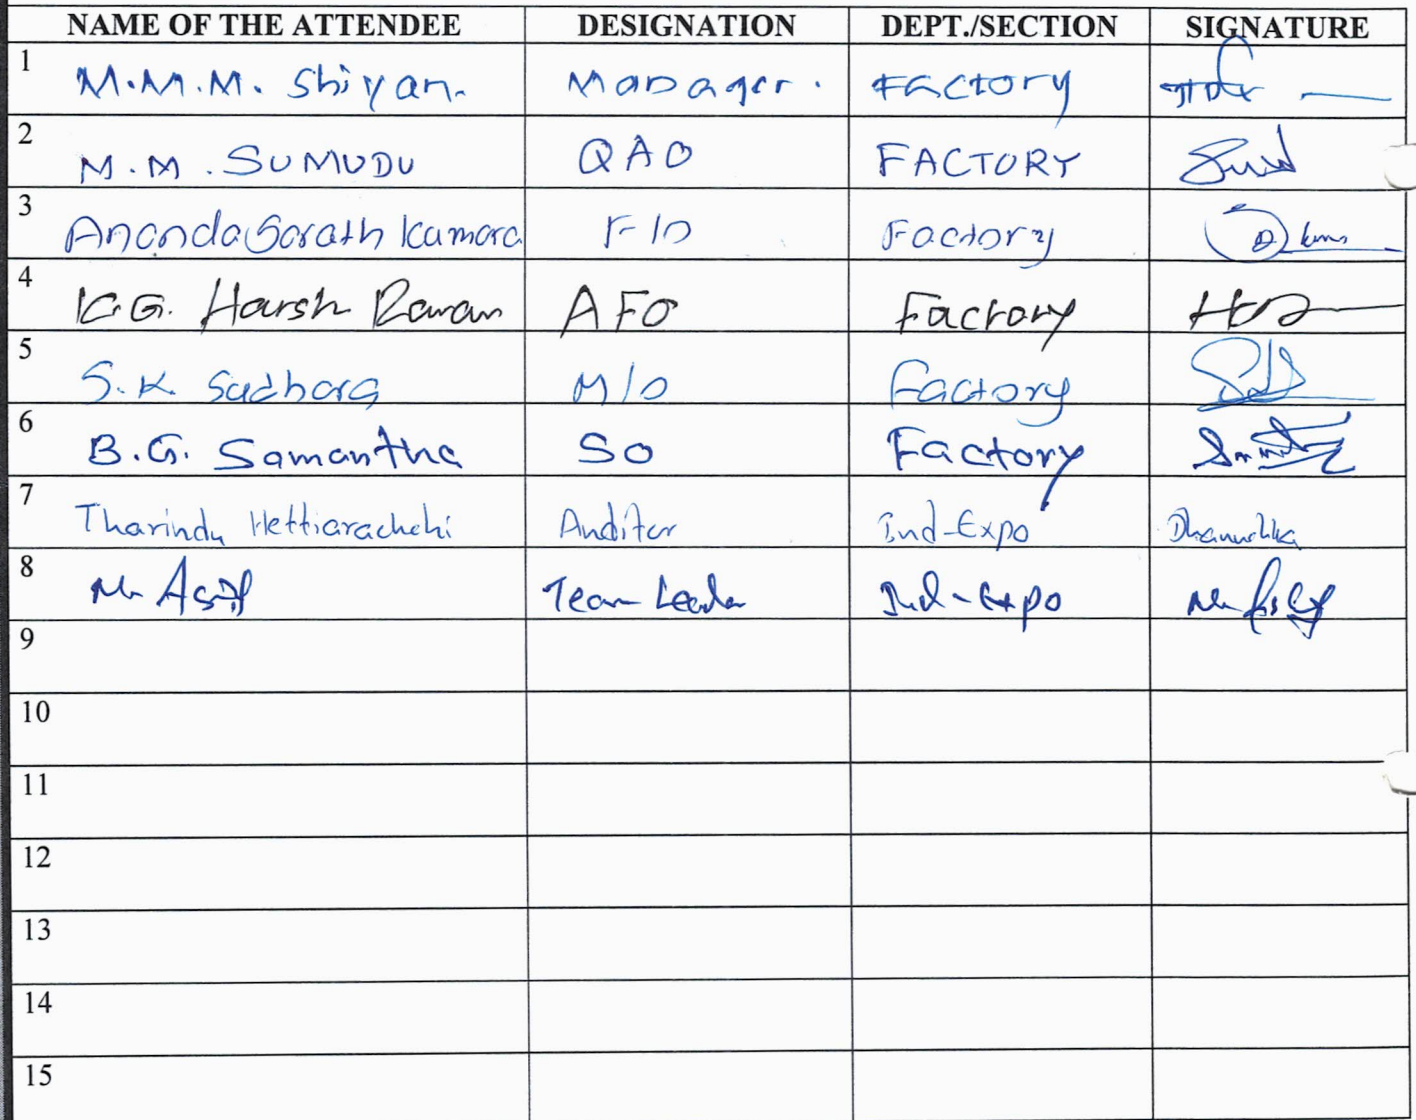 NAME OF THE ATTENDEE DESIGNATION DEPT./SECTION SIGNATURE
1 M.M.M. Shiyan. Manager. Factory
2 M.M. SUMUDU QAO FACTORY
3 Ananda Sarath Kumara F/O Factory
4 K.G. Harsh Rawan AFO Factory
5 S.K. Sadhara M/O Factory
6 B.G. Samantha SO Factory
7 Tharindu Hettiarachchi Auditor Ind-Expo Dhanushka
8 Mr Asif Team Leader Ind-Expo
9
10
11
12
13
14
15